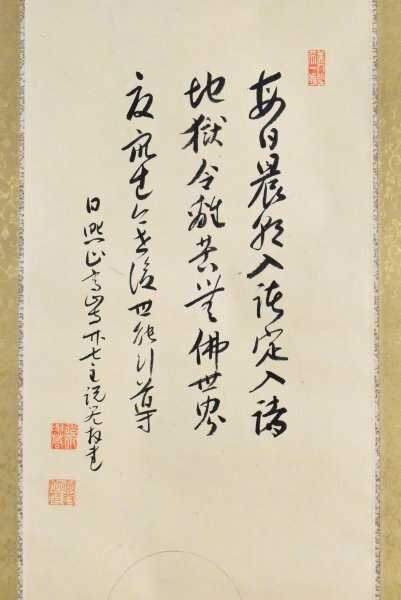 每日晨朝入諸定入諸
地獄令離苦無佛世界
度衆生今世後世能引導
日照山高山寺廿七主説